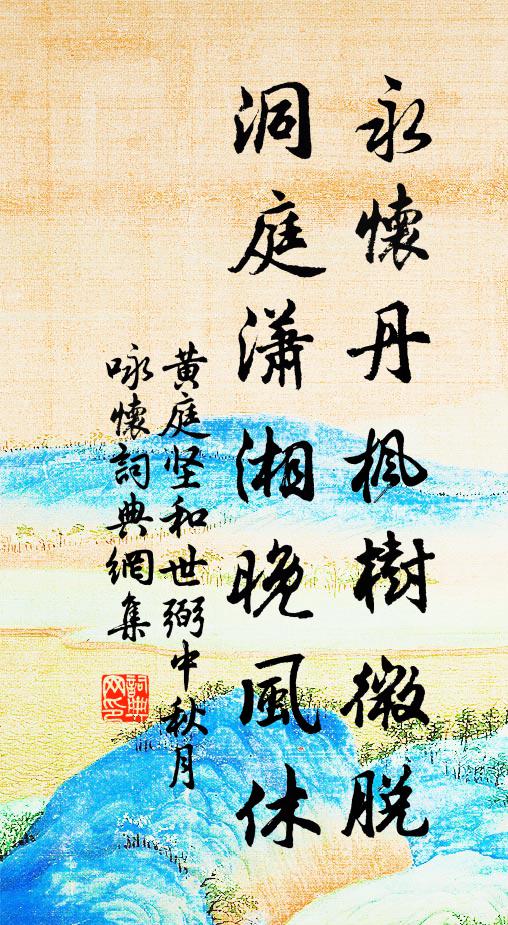 永懷丹楓樹微脫
洞庭瀟湘晚風休
黃庭坚和世弼中秋月
咏懷詞典網集
詞典网印